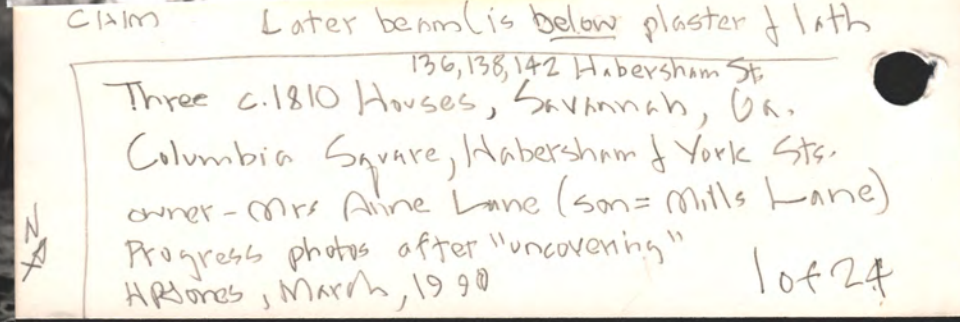 CIAIM Later beam (is below plaster & lath
136, 138, 142 Habersham St.
Three c.1810 Houses, Savannah, Ga.
Columbia Square, Habersham & York Sts.
owner - Mrs Anne Lane (son = Mills Lane)
N
Progress photos after "uncovering"
HPJones, March, 1990
1 of 24